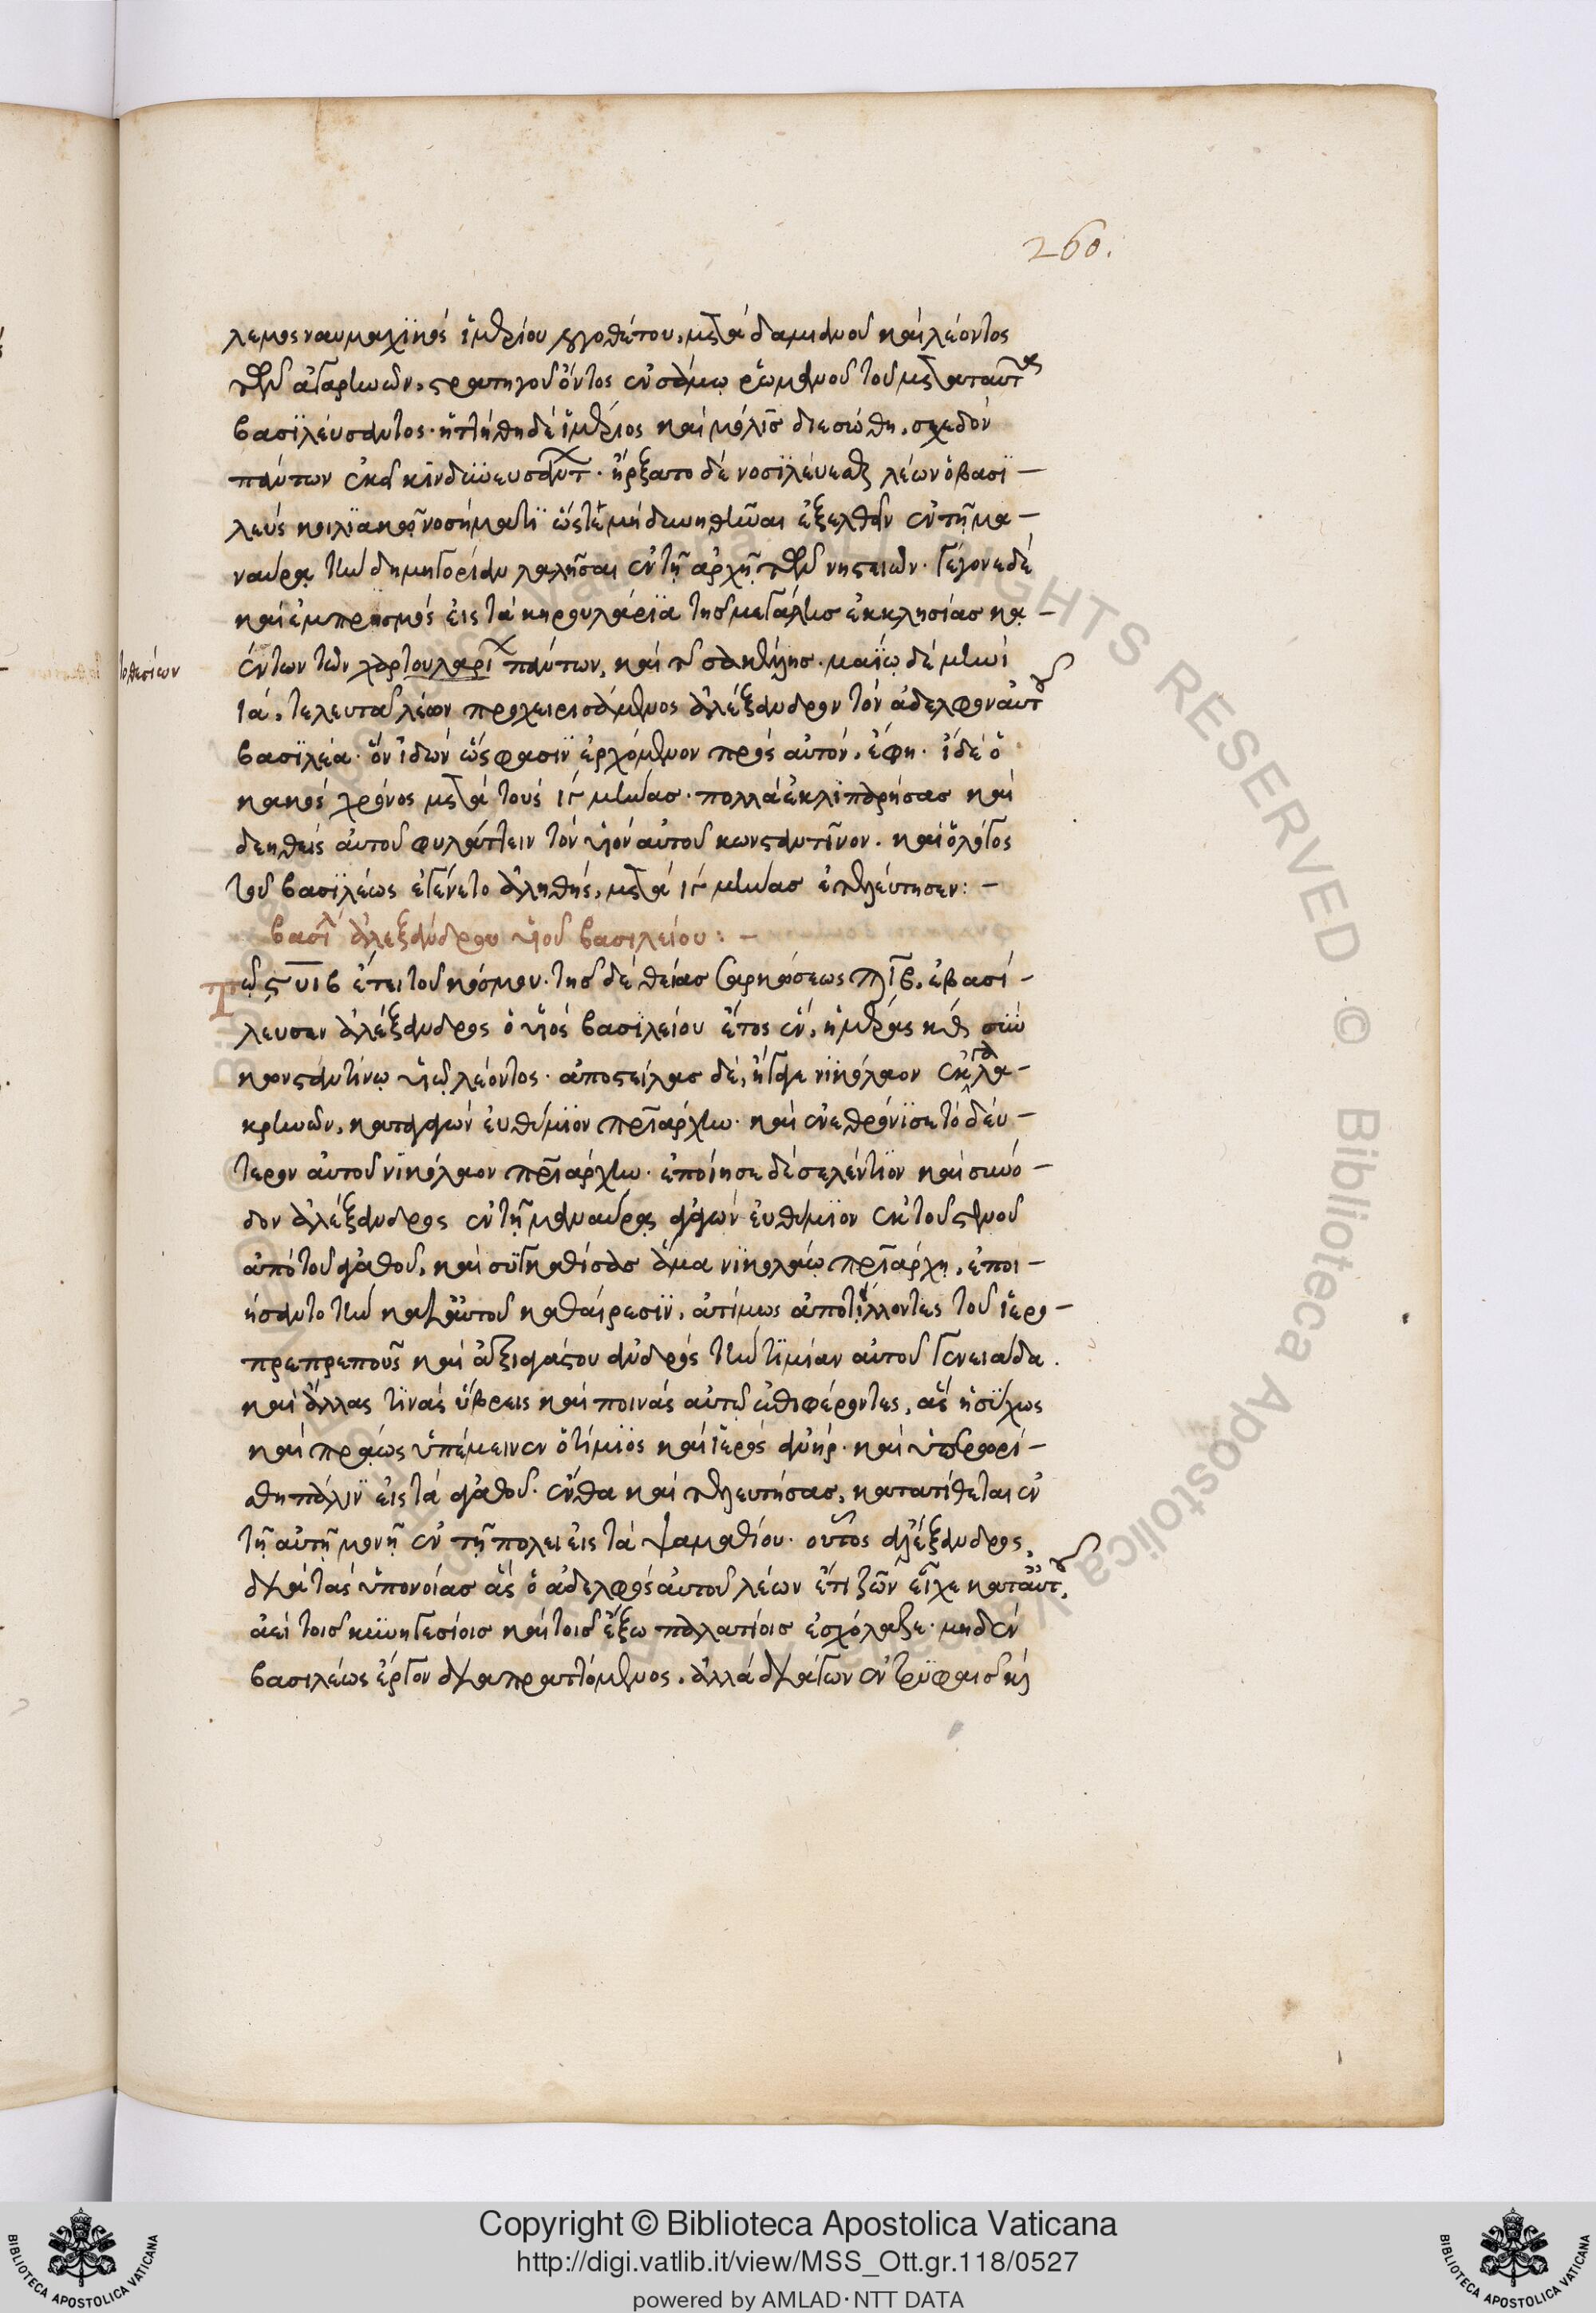 260.
λεμος ναυμαχϊκὸς ἱμερίου λογοθέτου, μετὰ δαμιανοῦ καὶ λέοντος
τῶν ἀγαρηνῶν, στρατηγοῦ ὄντος ἐν σάμω ῥωμανοῦ τοῦ μετὰ ταῦτα
βασϊλεύσαντος· ἡττήθη δὲ ἱμέριος καὶ μόλις διεσώθη, σχεδὸν
πάντων ἐκεῖ κινδϋνευσάντων· ἤρξατο δὲ νοσϊλεύεσθαι λέων ὁ βασϊ-
λεὺς κοιλϊακῷ νοσήματϊ ὥστε μὴ δυνηθῆναι ἐξελθεῖν ἐν τῇ μα-
ναύρᾳ τὴν δημηγορίαν λαλῆσαι ἐν τῇ ἀρχῇ τῶν νηστειῶν· γέγονε δὲ
καὶ ἐμπρησμὸς εἰς τὰ κηρουλάρϊα τῆς μεγάλης ἐκκλησίας κα-
έντων τῶν χαρτουλαρί πάντων, καὶ τ σακέλλης. μαΐω δὲ μηνὶ
τοθεσίων
ια, τελευτᾷ λέων προχειρισάμενος ἀλέξανδρον τὸν ἀδελφὸν αὐτοῦ
βασϊλέα· ὃν ἰδὼν ὥς φασιν ἐρχόμενον πρὸς αὐτόν, ἔφη· ἰδὲ ὁ
κακὸς χρόνος μετὰ τοὺς ιγ μῆνας· πολλὰ ἐκλιπαρήσας καὶ
δεηθεὶς αὐτοῦ φυλάττειν τὸν υἱὸν αὐτοῦ κωνσταντῖνον. καὶ ὁ λόγος
τοῦ βασϊλέως ἐγένετο ἀληθής, μετὰ ιγ μῆνας ἐτελεύτησεν: -
βασιλ ἀλεξάνδρου υἱοῦ βασιλείου: -
Τῷ ϛυιβ ἔτει τοῦ κόσμου. τῆς δὲ θείας σαρκώσεως ϡιβ, ἐβασί-
λευσεν ἀλέξανδρος ὁ υἱὸς βασϊλείου ἔτος ἕν, ἡμέρας κθ σὺν
κωνσταντίνω υἱῷ λέοντος· ἀποστείλας δὲ, ἤγαγε νϊκόλαον ἐκ γαλα-
κρηνῶν, καταγαγὼν εὐθύμϊον πατριάρχην· καὶ ἐνεθρόνϊσε τὸ δεύ-
τερον αὐτοῦ νϊκόλαον πατριάρχην· ἐποίησε δὲ σελέντϊον καὶ συνό-
δον ἀλέξανδρος ἐν τῇ μαναύρᾳ ἀγαγὼν εὐθύμϊον ἐκ τοῦ στενοῦ
ἀπὸ τοῦ ἀγάθου, καὶ συγκαθίσας ἅμα νϊκολάῳ πατριάρχη, ἐποι-
ήσαντο τὴν κατ' αὐτοῦ καθαίρεσϊν, ἀτίμως ἀποτίλλοντες τοῦ ἱερο-
πρεπρεποῦς καὶ ἀξιαγάστου ἀνδρὸς τὴν τϊμίαν αὐτοῦ γενειάδα.
καὶ ἄλλας τϊνὰς ὕβρεις καὶ ποινὰς αὐτῷ ἐπιφέροντες, ἃς ἡσύχως
καὶ πράως ὑπέμεινεν ὁ τίμϊος καὶ ἱερὸς ἀνήρ· καὶ ὑπερορί-
σθη πάλϊν εἰς τὰ ἀγάθου· ἔνθα καὶ τελευτήσας, κατατίθεται ἐν
τῇ αὐτῇ μονῇ ἐν τῇ πόλει εἰς τὰ ψαμαθίου· οὗτος ἀλέξανδρος,
διὰ τὰς ὑπονοίας ἃς ὁ ἀδελφὸς αὐτοῦ λέων ἔτι ζῶν εἶχε κατ' αὐτοῦ,
ἀεὶ τοῖς κϋνηγεσίοις καὶ τοῖς ἔξω παλατίοις ἐσχόλαζε· μηδὲν
βασιλέως ἔργον διαπραττόμενος, ἀλλὰ διάγων ἐν τρϋφαῖς καὶ
Copyright © Biblioteca Apostolica Vaticana
http://digi.vatlib.it/view/MSS_Ott.gr.118/0527
powered by AMLAD·NTT DATA